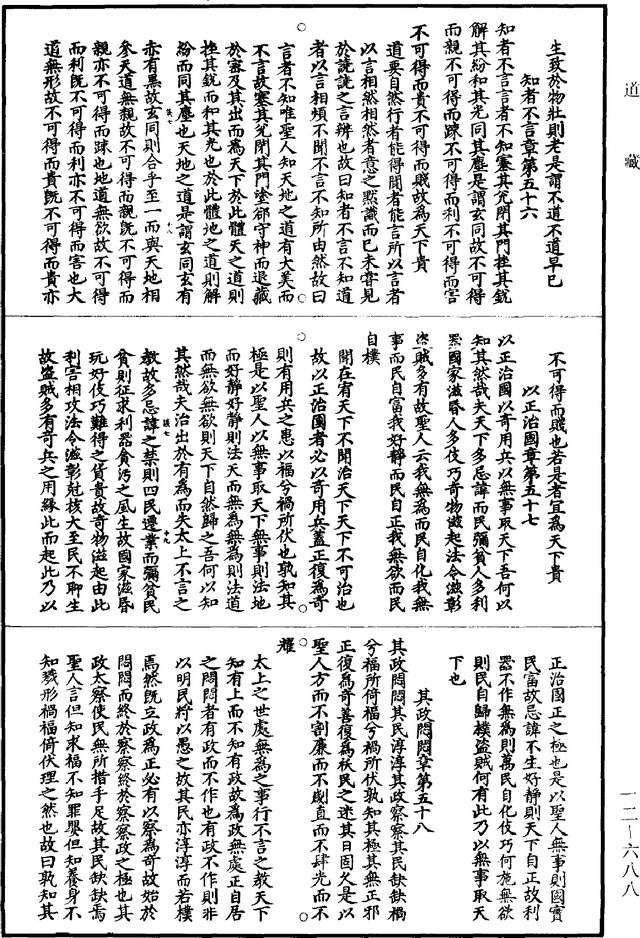 道藏
生致於物壯則老是謂不道不道早已
知者不言章第五十六
知者不言言者不知塞其兌閉其門挫其銳
解其紛和其光同其塵是謂玄同故不可得
而親不可得而踈不可得而利不可得而害
不可得而貴不可得而賤故為天下貴
道要自然行者能得聞者能言所以言者
以言相然相然者意之黙識而已未甞見
於諕諕之言辨也故曰知者不言不知道
者以言相煩不聞不言不知所由然故曰
言者不知唯聖人知天地之道有大美而
不言故塞其兌閉其門塗郤守神而退藏
於密及其出而為天下於此體天之道則
挫其銳而和其光也於此體地之道則解
紛而同其塵也天地之道是謂玄同玄有
亦有黑故玄同則合乎至一而與天地相
參天道無親故不可得而親既不可得而
親亦不可得而踈也地道無欲故不可得
而利既不可得而利亦不可得而害也大
道無形故不可得而貴既不可得而貴亦
不可得而賤也若是者宜為天下貴
以正治國章第五十七
以正治國以奇用兵以無事取天下吾何以
知其然哉夫天下多忌諱而民彌貧人多利
器國家滋昏人多伎巧奇物滋起法令滋彰
盜賊多有故聖人云我無為而民自化我無
事而民自富我好靜而民自正我無欲而民
自樸
聞在宥天下不聞治天下天下不可治也
故以正治國者必以奇用兵蓋正復為奇
則有用兵之患以福兮禍所伏也孰知其
極是以聖人以無事取天下無事則法地
而好靜好靜則法天而無為無為則法道
而無欲無欲則天下自然歸之吾何以知
其然哉夫治出於有為而失太上不言之
教故多忌諱之禁則四民遷業而彌貧民
貪則征求利器貪污之風生故國家滋昏
玩好伎巧難得之貨貴故奇物滋起由此
利害相攻法令滋彰剋核大至民不聊生
故盜賊多有奇兵之用緣此而起此乃以
正治國正之極也是以聖人無事則國實
民富故忌諱不生好靜則天下自正故利
器不作無為則萬民自化伎巧何施無欲
則民自歸樸盜賊何有此乃以無事取天
下也
其政悶悶章第五十八
其政悶悶其民淳淳其政察察其民缺缺禍
兮福所倚福兮禍所伏孰知其極其無正邪
正復為奇善復為祅民之迷其日固久是以
聖人方而不割廉而不劌直而不肆光而不
耀
太上之世處無為之事行不言之教天下
知有上而不知有政故為政無處正自居
之悶悶者有政而不作也有政不作則非
以明民將以愚之故其民亦淳淳而若樸
焉然既立政為正必有以察為奇故始於
悶悶而終於察察終於察察政之極也其
政太察使民無所措手足故其民缺缺焉
聖人言但知求福不知罪嬰但知養身不
知殘形禍福倚伏理之然也故曰孰知其
一二―六八八